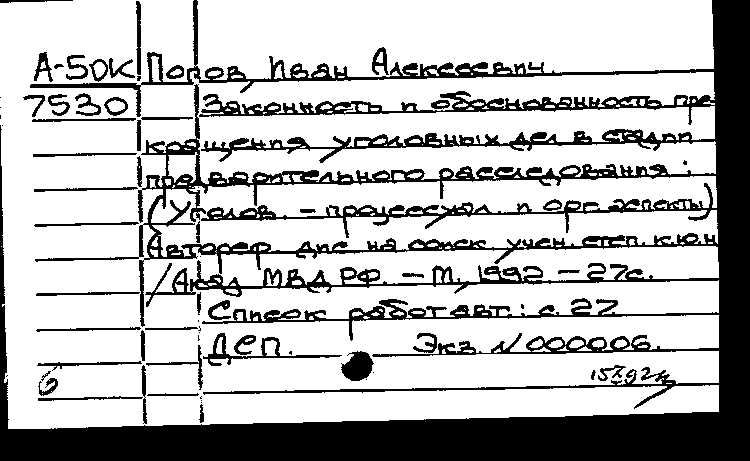 А-5ОК Попов, Иван Алексеевич.
7530 Законность и обоснованность пре-
кращения уголовных дел в стадии
предварительного расследования:
(Уголов. - процессуал. и орг. аспекты)
Автореф. дис на соиск. учен. степ. к.ю.н
/Акад МВД РФ. - М, 1992 - 27с.
Список работ авт.: с. 27
ДСП. Экз. N 000006.
6